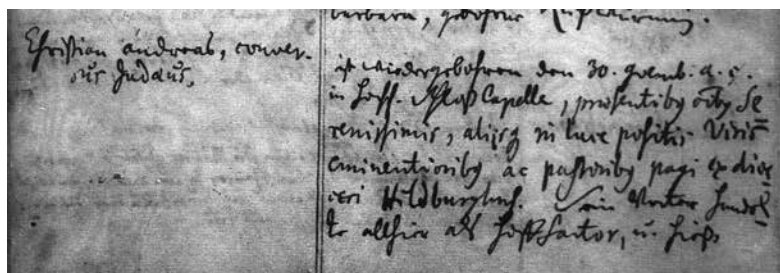 Christian Andreas, conver-
sus Judäus.
barbara, gebohrne
ist wiedergebohren den 30. 9vemb. a. c.
in hoff. Schloß Capelle, præsentibq
renissimis, alijsq in luce positis Viris
eminentioribq ac pastoribq pagi
Hildburghus. Sein Vater handel
te allhier als Hoff Factor, u. hieß